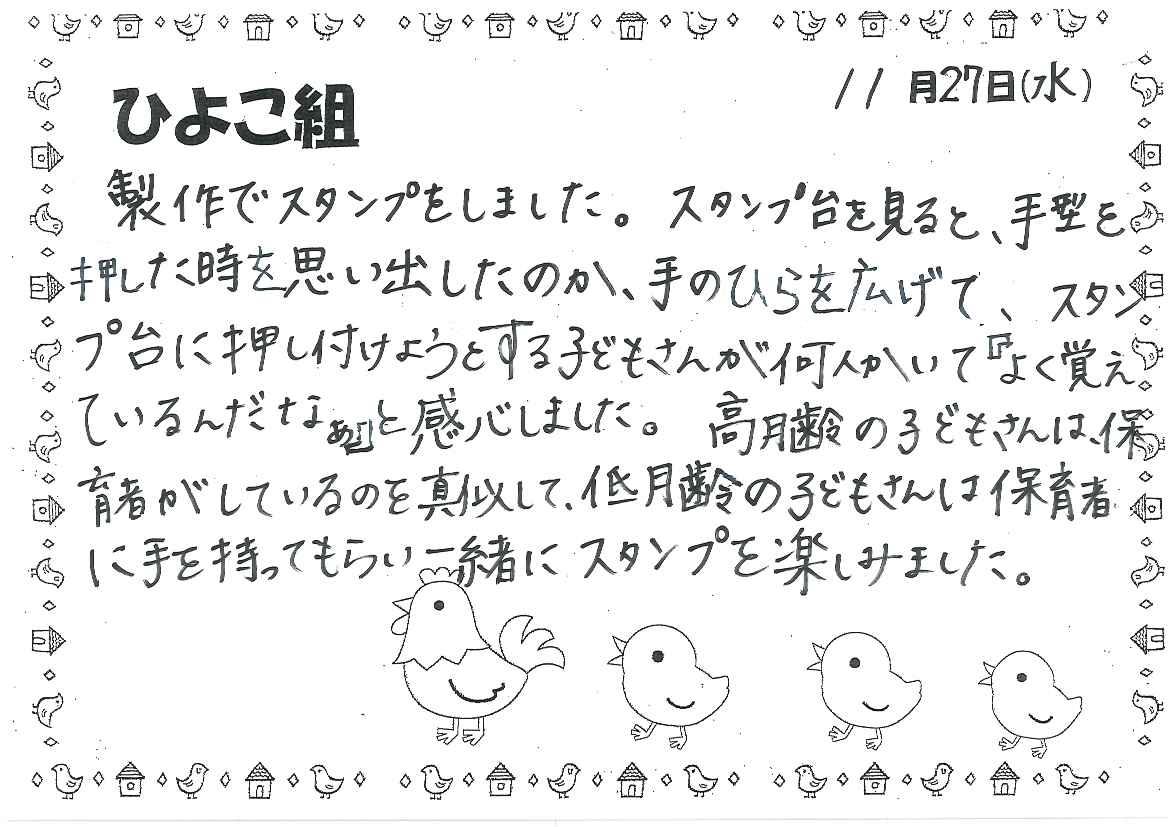 ひよこ組
11月27日(水)
製作でスタンプをしました。スタンプ台を見ると、手型を
押した時を思い出したのか、手のひらを広げて、スタン
プ台に押し付けようとする子どもさんが何人かいて『よく覚え
ているんだなぁ』と感心しました。高月齢の子どもさんは、保
育者がしているのを真似して、低月齢の子どもさんは保育者
に手を持ってもらい一緒にスタンプを楽しみました。